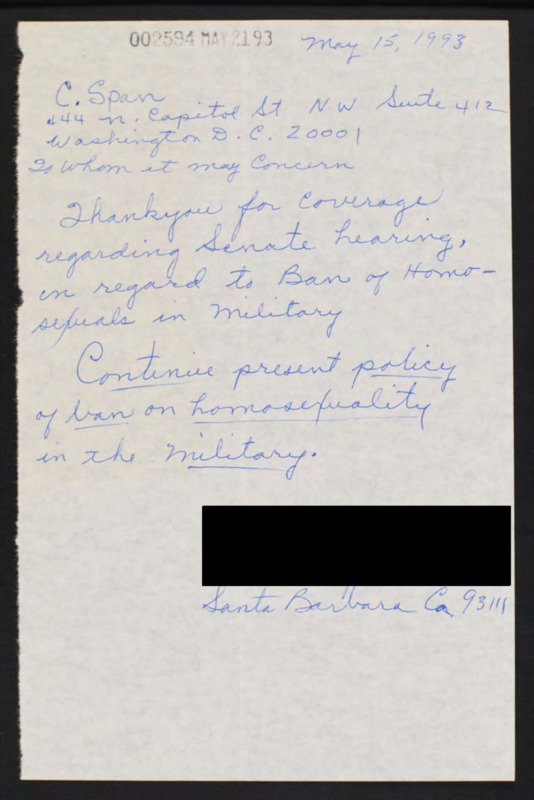 002594 MAY 21 93
May 15, 1993
C. Span
444 N. Capitol St NW Suite 412
Washington D. C. 20001
To whom it may Concern
Thankyou for coverage
regarding Senate hearing,
in regard to Ban of Homo-
sexuals in Military
Continue present policy
of ban on homosexuality
in the Military.
Santa Barbara Ca, 93111